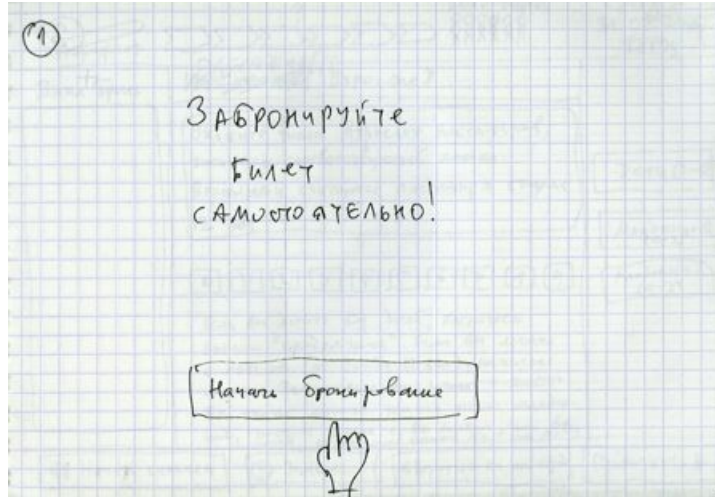 1
Забронируйте
Билет
самостоятельно!
Начать бронирование